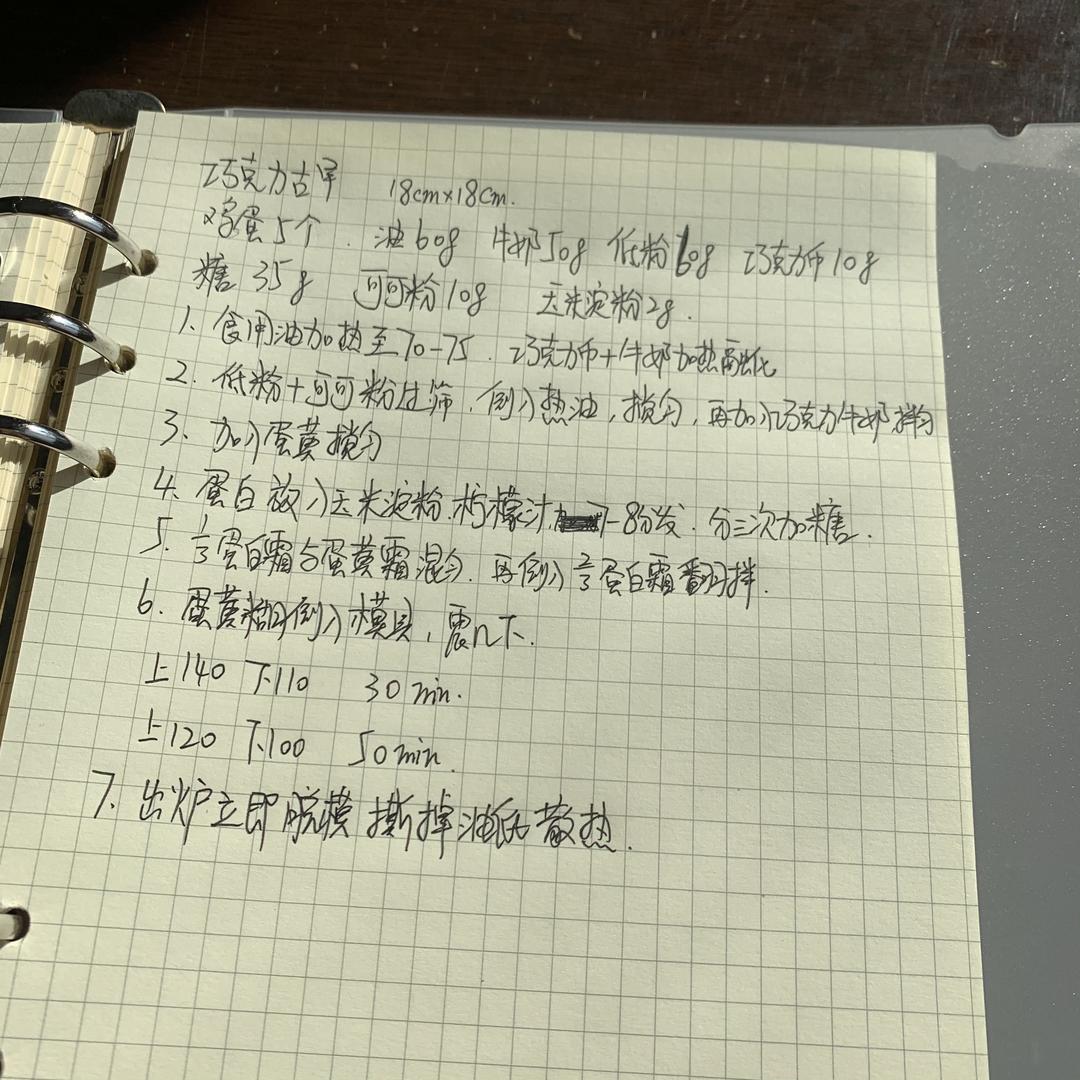 巧克力古早 18cm×18cm.
鸡蛋5个. 油60g 牛奶50g 低粉60g 巧克力币10g
糖35g 可可粉10g 玉米淀粉2g.
1. 食用油加热至70-75. 巧克力币+牛奶加热融化
2. 低粉+可可粉过筛, 倒入热油, 搅匀, 再加入巧克力牛奶拌匀
3. 加入蛋黄搅匀
4. 蛋白放入玉米淀粉.柠檬汁. 7-8分发. 分三次加糖.
5. 1/3蛋白霜与蛋黄霜混匀. 再倒入2/3蛋白霜翻拌.
6. 蛋黄糊倒入模具, 震n下.
上140 下110 30min.
上120 下100 50min.
7. 出炉立即脱模 撕掉油纸散热.